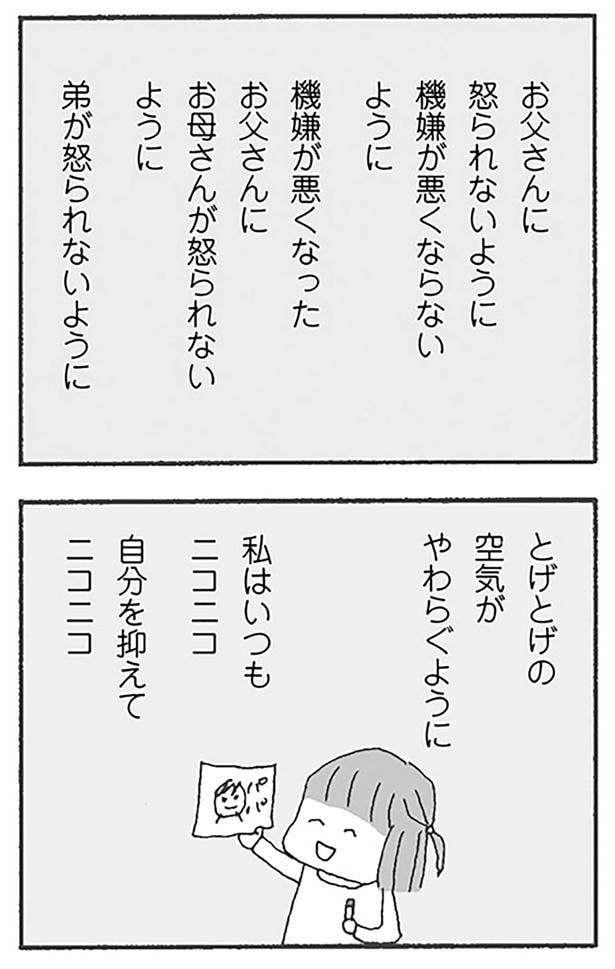 お父さんに
怒られないように
機嫌が悪くならない
ように
機嫌が悪くなった
お父さんに
お母さんが怒られない
ように
弟が怒られないように
とげとげの
空気が
やわらぐように
私はいつも
ニコニコ
自分を抑えて
ニコニコ
パパ